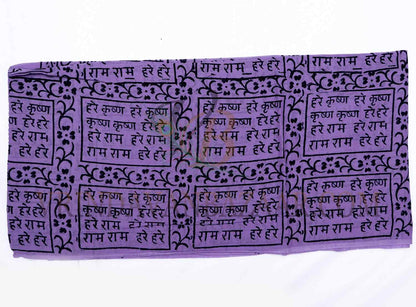 राम राम हरे हरे
राम राम हरे हरे
राम राम हरे हरे
हरे कृष्ण हरे कृष्ण
कृष्ण कृष्ण हरे हरे
हरे राम हरे राम
राम राम हरे हरे
हरे कृष्ण हरे कृष्ण
कृष्ण कृष्ण हरे हरे
हरे राम हरे राम
राम राम हरे हरे
हरे कृष्ण हरे कृष्ण
कृष्ण कृष्ण हरे हरे
हरे राम हरे राम
राम राम हरे हरे
हरे कृष्ण हरे कृष्ण
कृष्ण कृष्ण हरे हरे
हरे राम हरे राम
राम राम हरे हरे
हरे कृष्ण हरे कृष्ण
कृष्ण कृष्ण हरे हरे
हरे राम हरे राम
राम राम हरे हरे
हरे कृष्ण हरे कृष्ण
कृष्ण कृष्ण हरे हरे
हरे राम हरे राम
राम राम हरे हरे